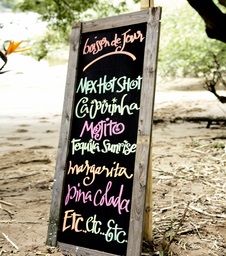 boisson de jour
Mex Hot Shot
Caipirinha
Mojito
Tequila Sunrise
margarita
pina Colada
ETC. etc... Etc.